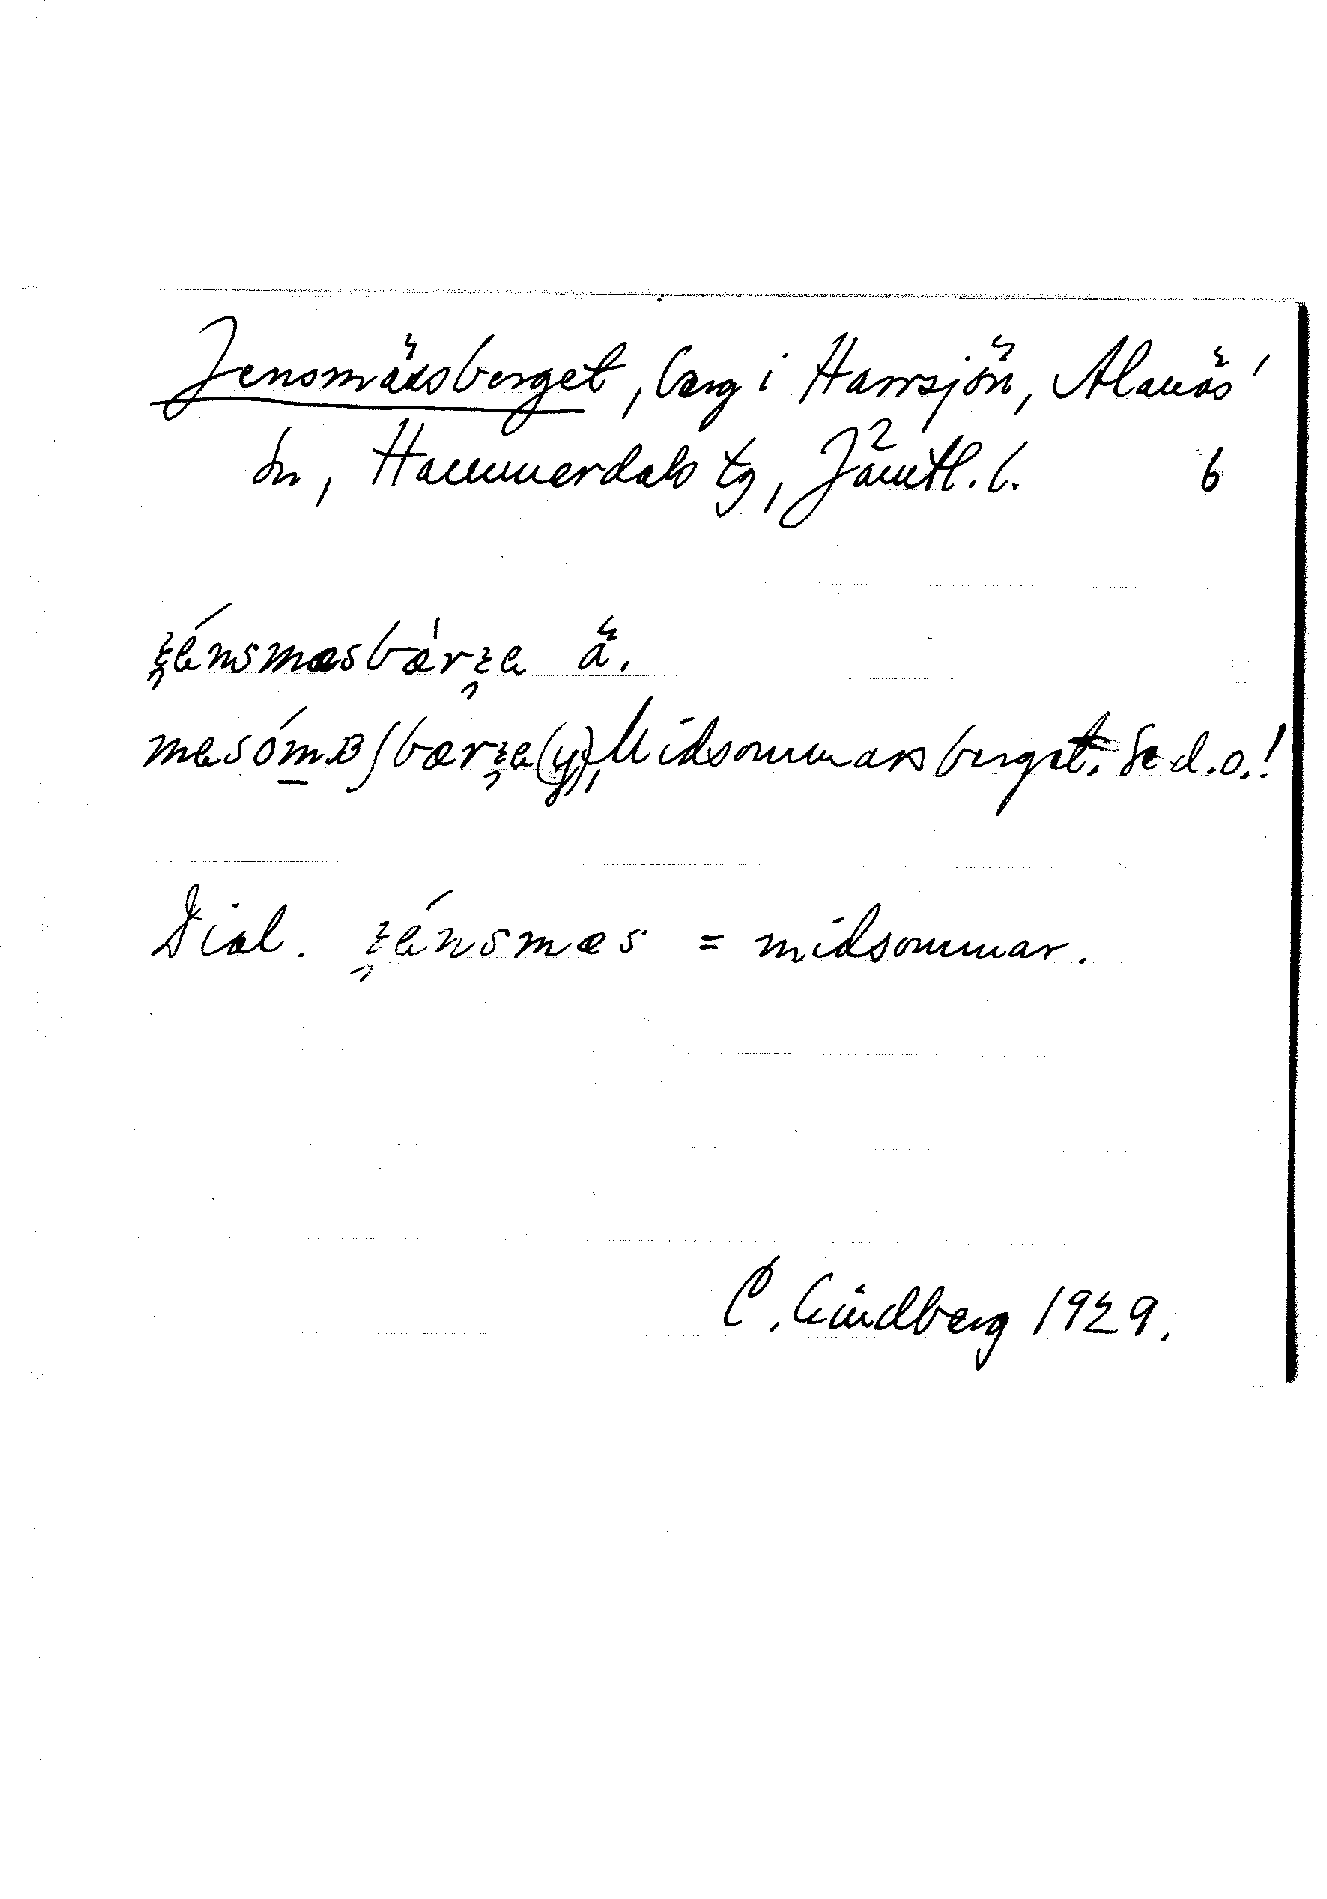 Jensmäsberget, berg i Harrsjön, Alanäs
sn, Hammerdals tg, Jämtl. l. 6
ʒénsmæsbàrʒe ä.
Midsommarsberget. Se d.o.!
Dial. ʒénsmæs = midsommar.
C. Lindberg 1929.